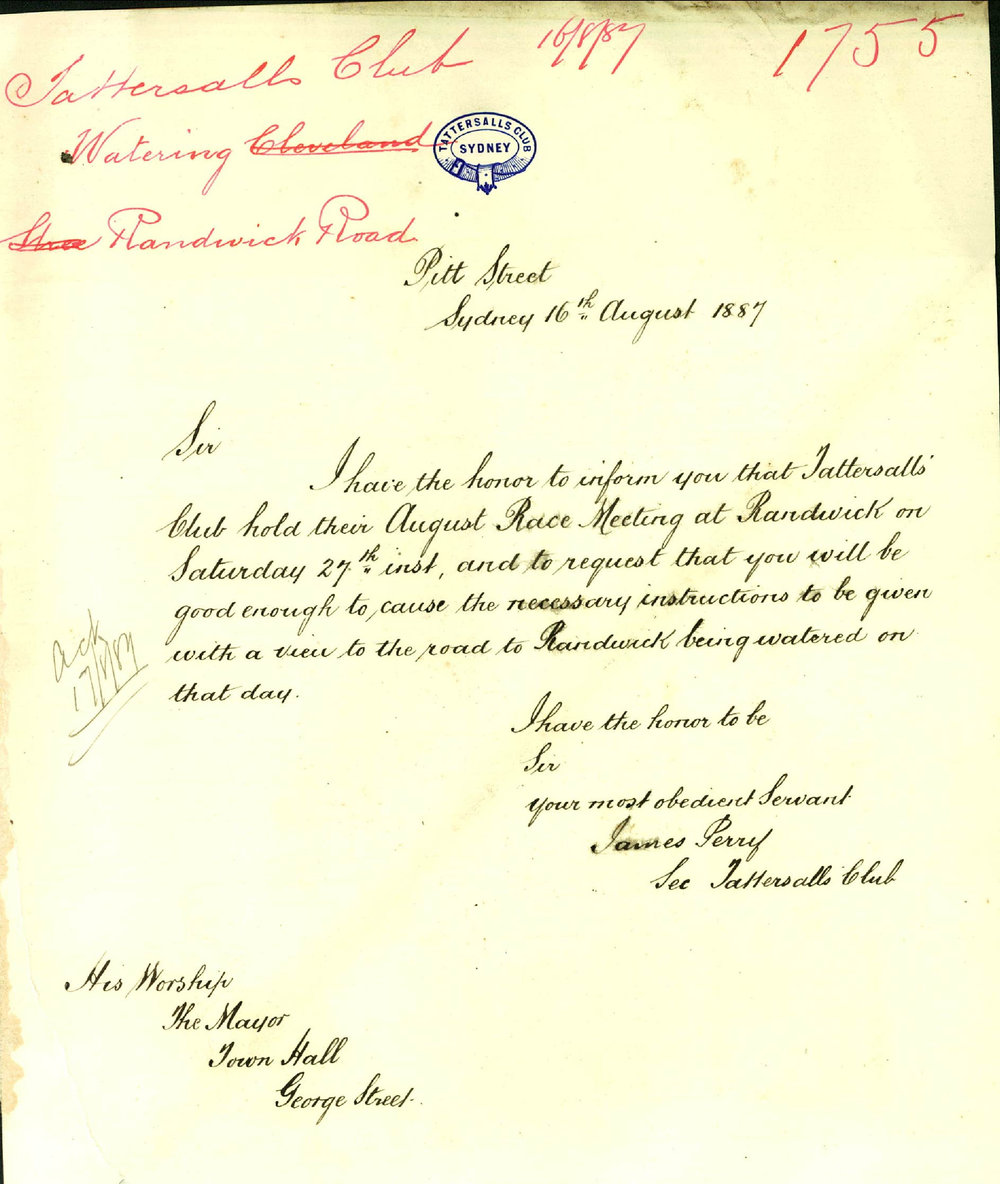 Tattersalls Club 16/8/87 1755
Watering Cleveland
Stree Randwick Road
TATTERSALLS CLUB
SYDNEY
Pitt Street
Sydney 16th August 1887
Sir
I have the honor to inform you that Tattersalls'
Club hold their August Race Meeting at Randwick on
Saturday 27th inst, and to request that you will be
good enough to cause the necessary instructions to be given
with a view to the road to Randwick being watered on
that day.
ack
17/8/87
I have the honor to be
Sir
your most obedient Servant
James Perry
Sec Tattersalls Club
His Worship
The Mayor
Town Hall
George Street.